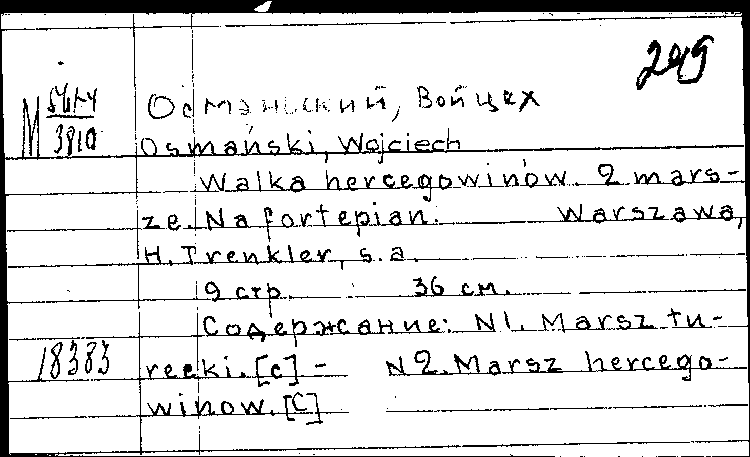 249
М 56г4/3810
Османьский, Войцех
Osmański, Wojciech
Walka hercegowinów. 2 mars-
ze. Na fortepian. Warszawa,
H. Trenkler, s.a.
9 стр. 36 см.
Содержание: N1. Marsz tu-
18383
recki. [c] - N2. Marsz hercego-
winow. [C]